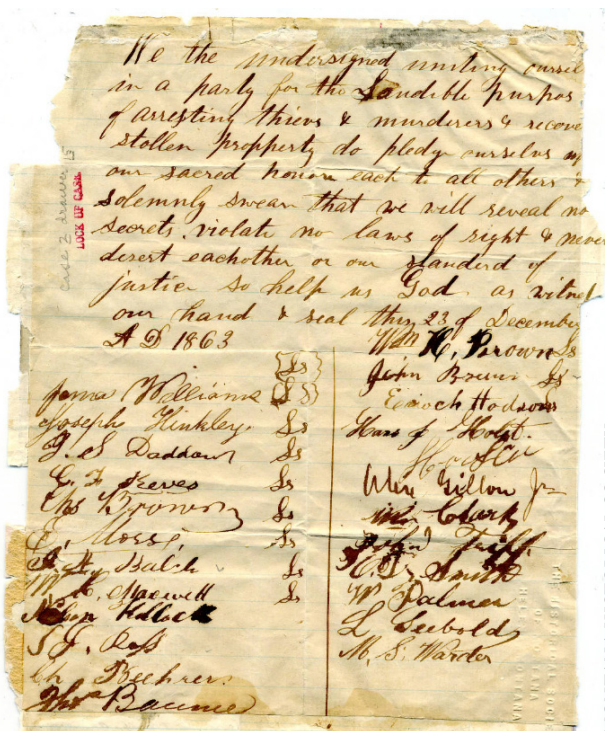 We the undersigned uniting oursel
in a party for the Laudible purpos
of arresting thievs & murderers & recove
stollen propperty do pledge ourselvs on
our sacred honor each to all others &
solemnly swear that we will reveal no
secrets, violate no laws of right & never
desert eachother or our standerd of
justice so help us God. as witnes
our hand & seal this 23 of December
A D 1863
case 2 drawer 15
LOCK UP CASE
James Williams {Ls}
Joseph Hinkley Ls
J. S Daddow Ls
C. F Keeves Ls
Chs Brown Ls
E. Morse Ls
Balch Ls
W. C. Maxwell Ls
Nelson Kellock
S. J. Ross
Ch Beehrer
Thos Baume
Wm H. Brown Ls
John Brown Ls
Enoch Hodson
Hans J Holst.
Alex Gillon Jr
Wm Clark
John Triff.
C. D. Smith
W Palmer
L Seebold
M. S. Warder